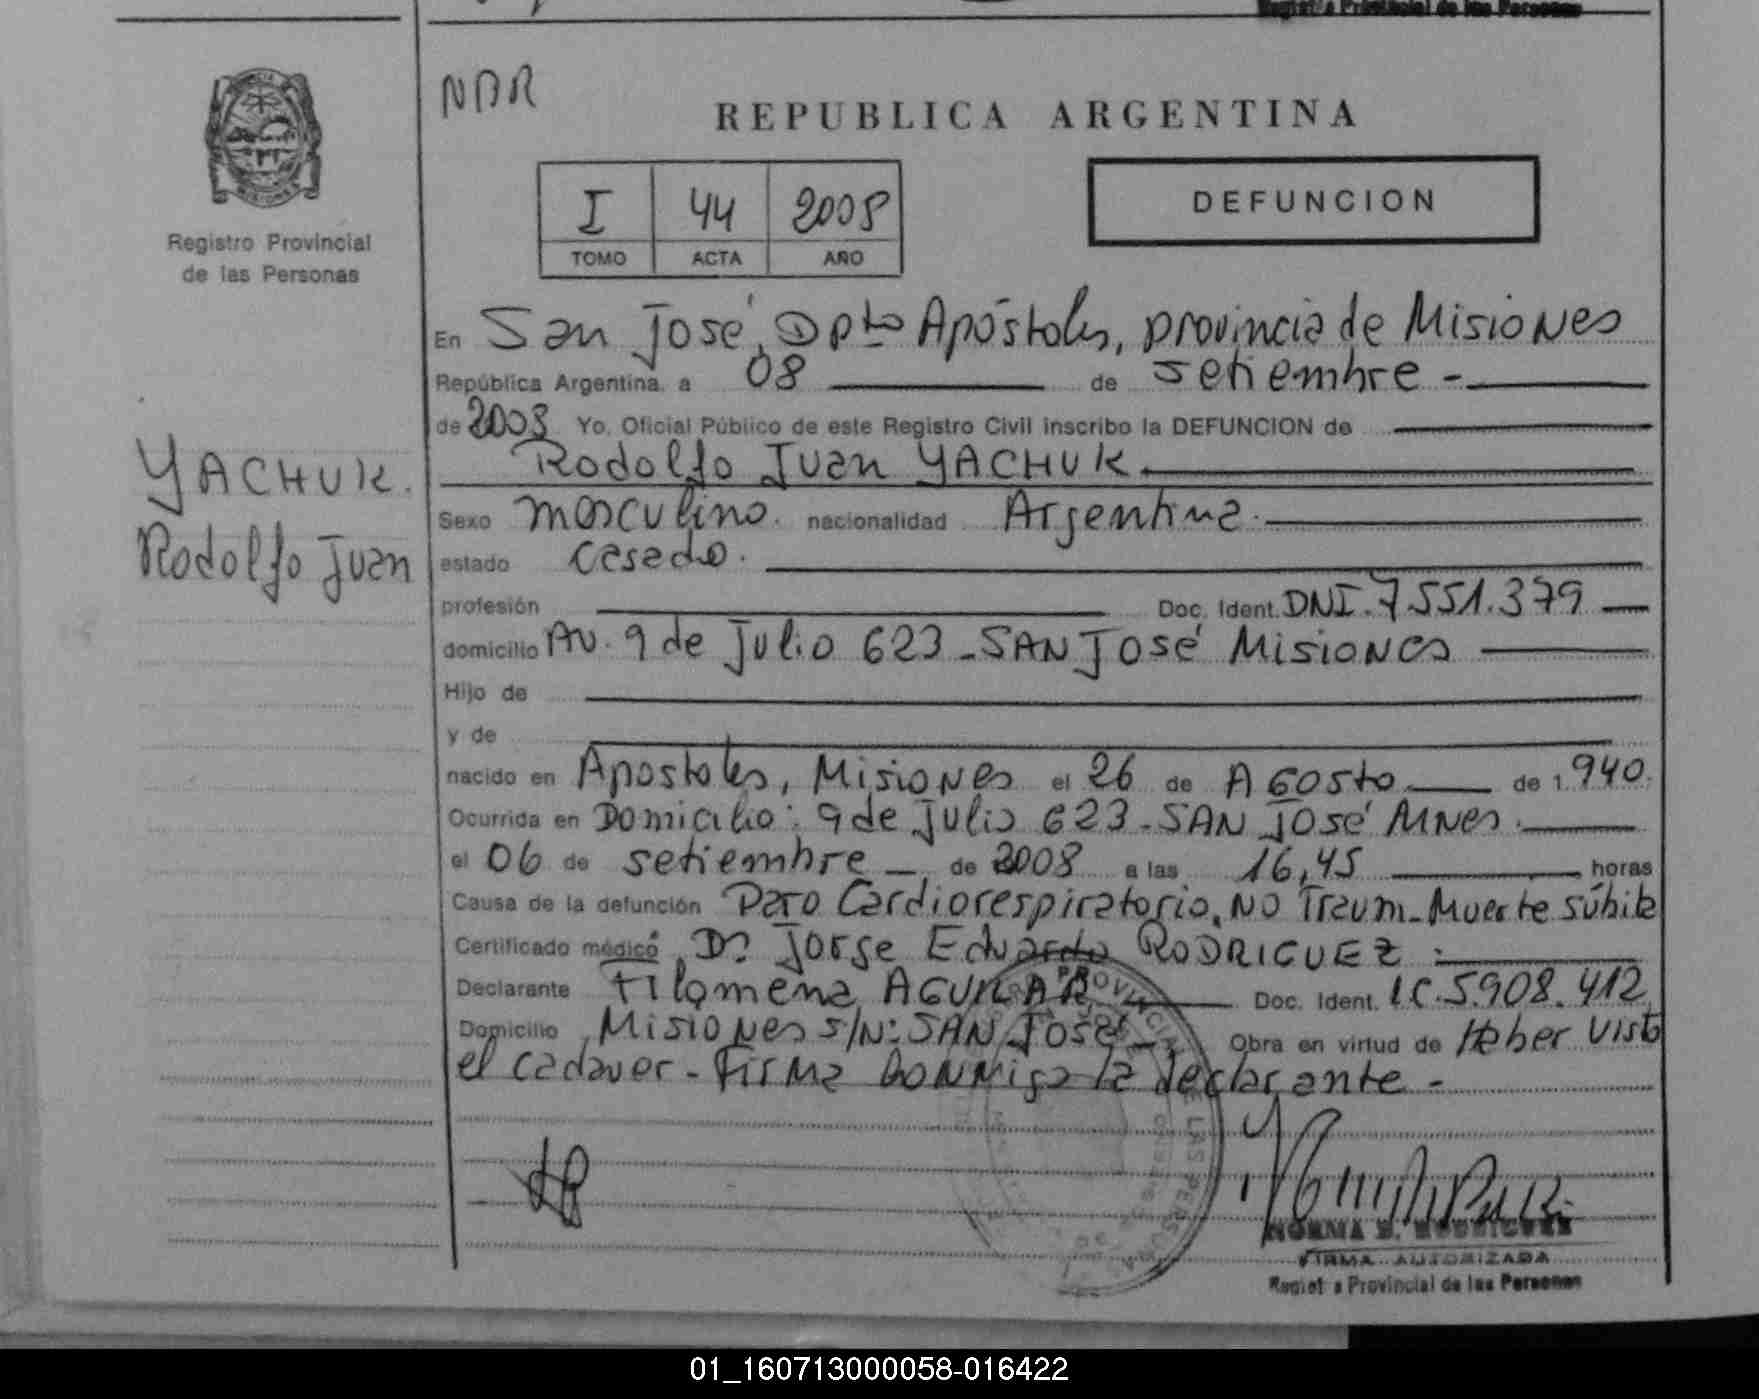 Registro Provincial de las Personas
NBR
REPUBLICA ARGENTINA
I 44 2008
TOMO ACTA AÑO
DEFUNCION
MISIONES
Registro Provincial
de las Personas
YACHUK.
Rodolfo Juan
En San José, Dpto Apóstoles, provincia de Misiones
República Argentina, a 08 de setiembre -
de 2008 Yo, Oficial Público de este Registro Civil inscribo la DEFUNCION de
Rodolfo Juan YACHUK
Sexo masculino. nacionalidad Argentina.
estado casado.
profesión Doc. Ident. DNI. 7.551.379
domicilio AV. 9 de Julio 623 - SAN JOSÉ Misiones
Hijo de
y de
nacido en Apostoles, Misiones el 26 de AGosto de 1.940.
Ocurrida en Domicilio: 9 de Julio 623 - SAN JOSÉ MNes.
el 06 de setiembre de 2008 a las 16,45 horas
Causa de la defunción Paro Cardiorespiratorio, NO Traum. Muerte súbita
Certificado médico Dr. Jorge Eduardo RODRIGUEZ
Declarante Filomena AGUILAR Doc. Ident. L.C. 5.908.412
Domicilio Misiones S/N: SAN JOSÉ - Obra en virtud de Haber visto
el cadaver - Firma conmigo la declarante -
NORMA B. RODRIGUEZ
FIRMA AUTORIZADA
Registro Provincial de las Personas
01_160713000058-016422